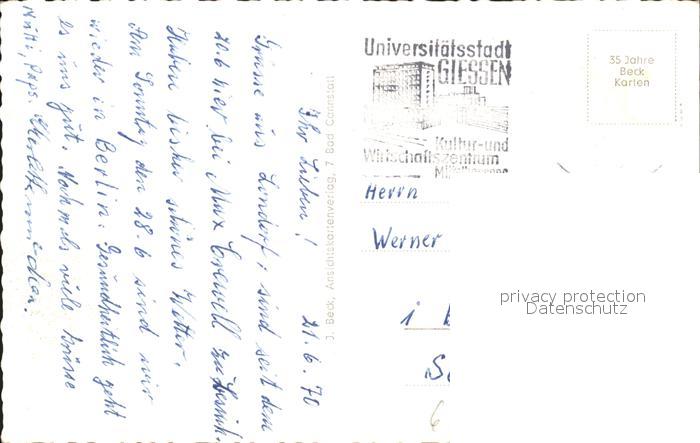 Ihr Lieben! 21.6.70
Grüsse aus Lindorf, sind seit dem
20.6 hier bei Max Crewell zu Besuch.
Haben bisher schönes Wetter.
Am Sonntag den 28.6 sind wir
wieder in Berlin. Gesundheitlich geht
es uns gut. Nochmals viele Grüsse
Mutti, Paps.
J. Beck, Ansichtskartenverlag, 7 Bad Cannstatt
Universitätsstadt
GIESSEN
Kultur-und
Wirtschaftszentrum
35 Jahre
Beck
Karten
Herrn
Werner
i
6
privacy protection
Datenschutz